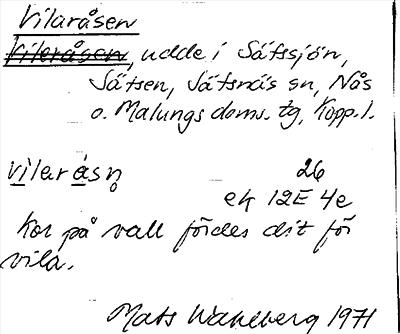 Vilaråsen
Vileråsen, udde i Sätssjön,
Sätsen, Jätsnäs sn, Nås
o. Malungs doms. tg, Kopp. l.
vileråsn̥ 26
ek 12E 4e
Kor på vall fördes dit för
vila.
Mats Wahlberg 1971